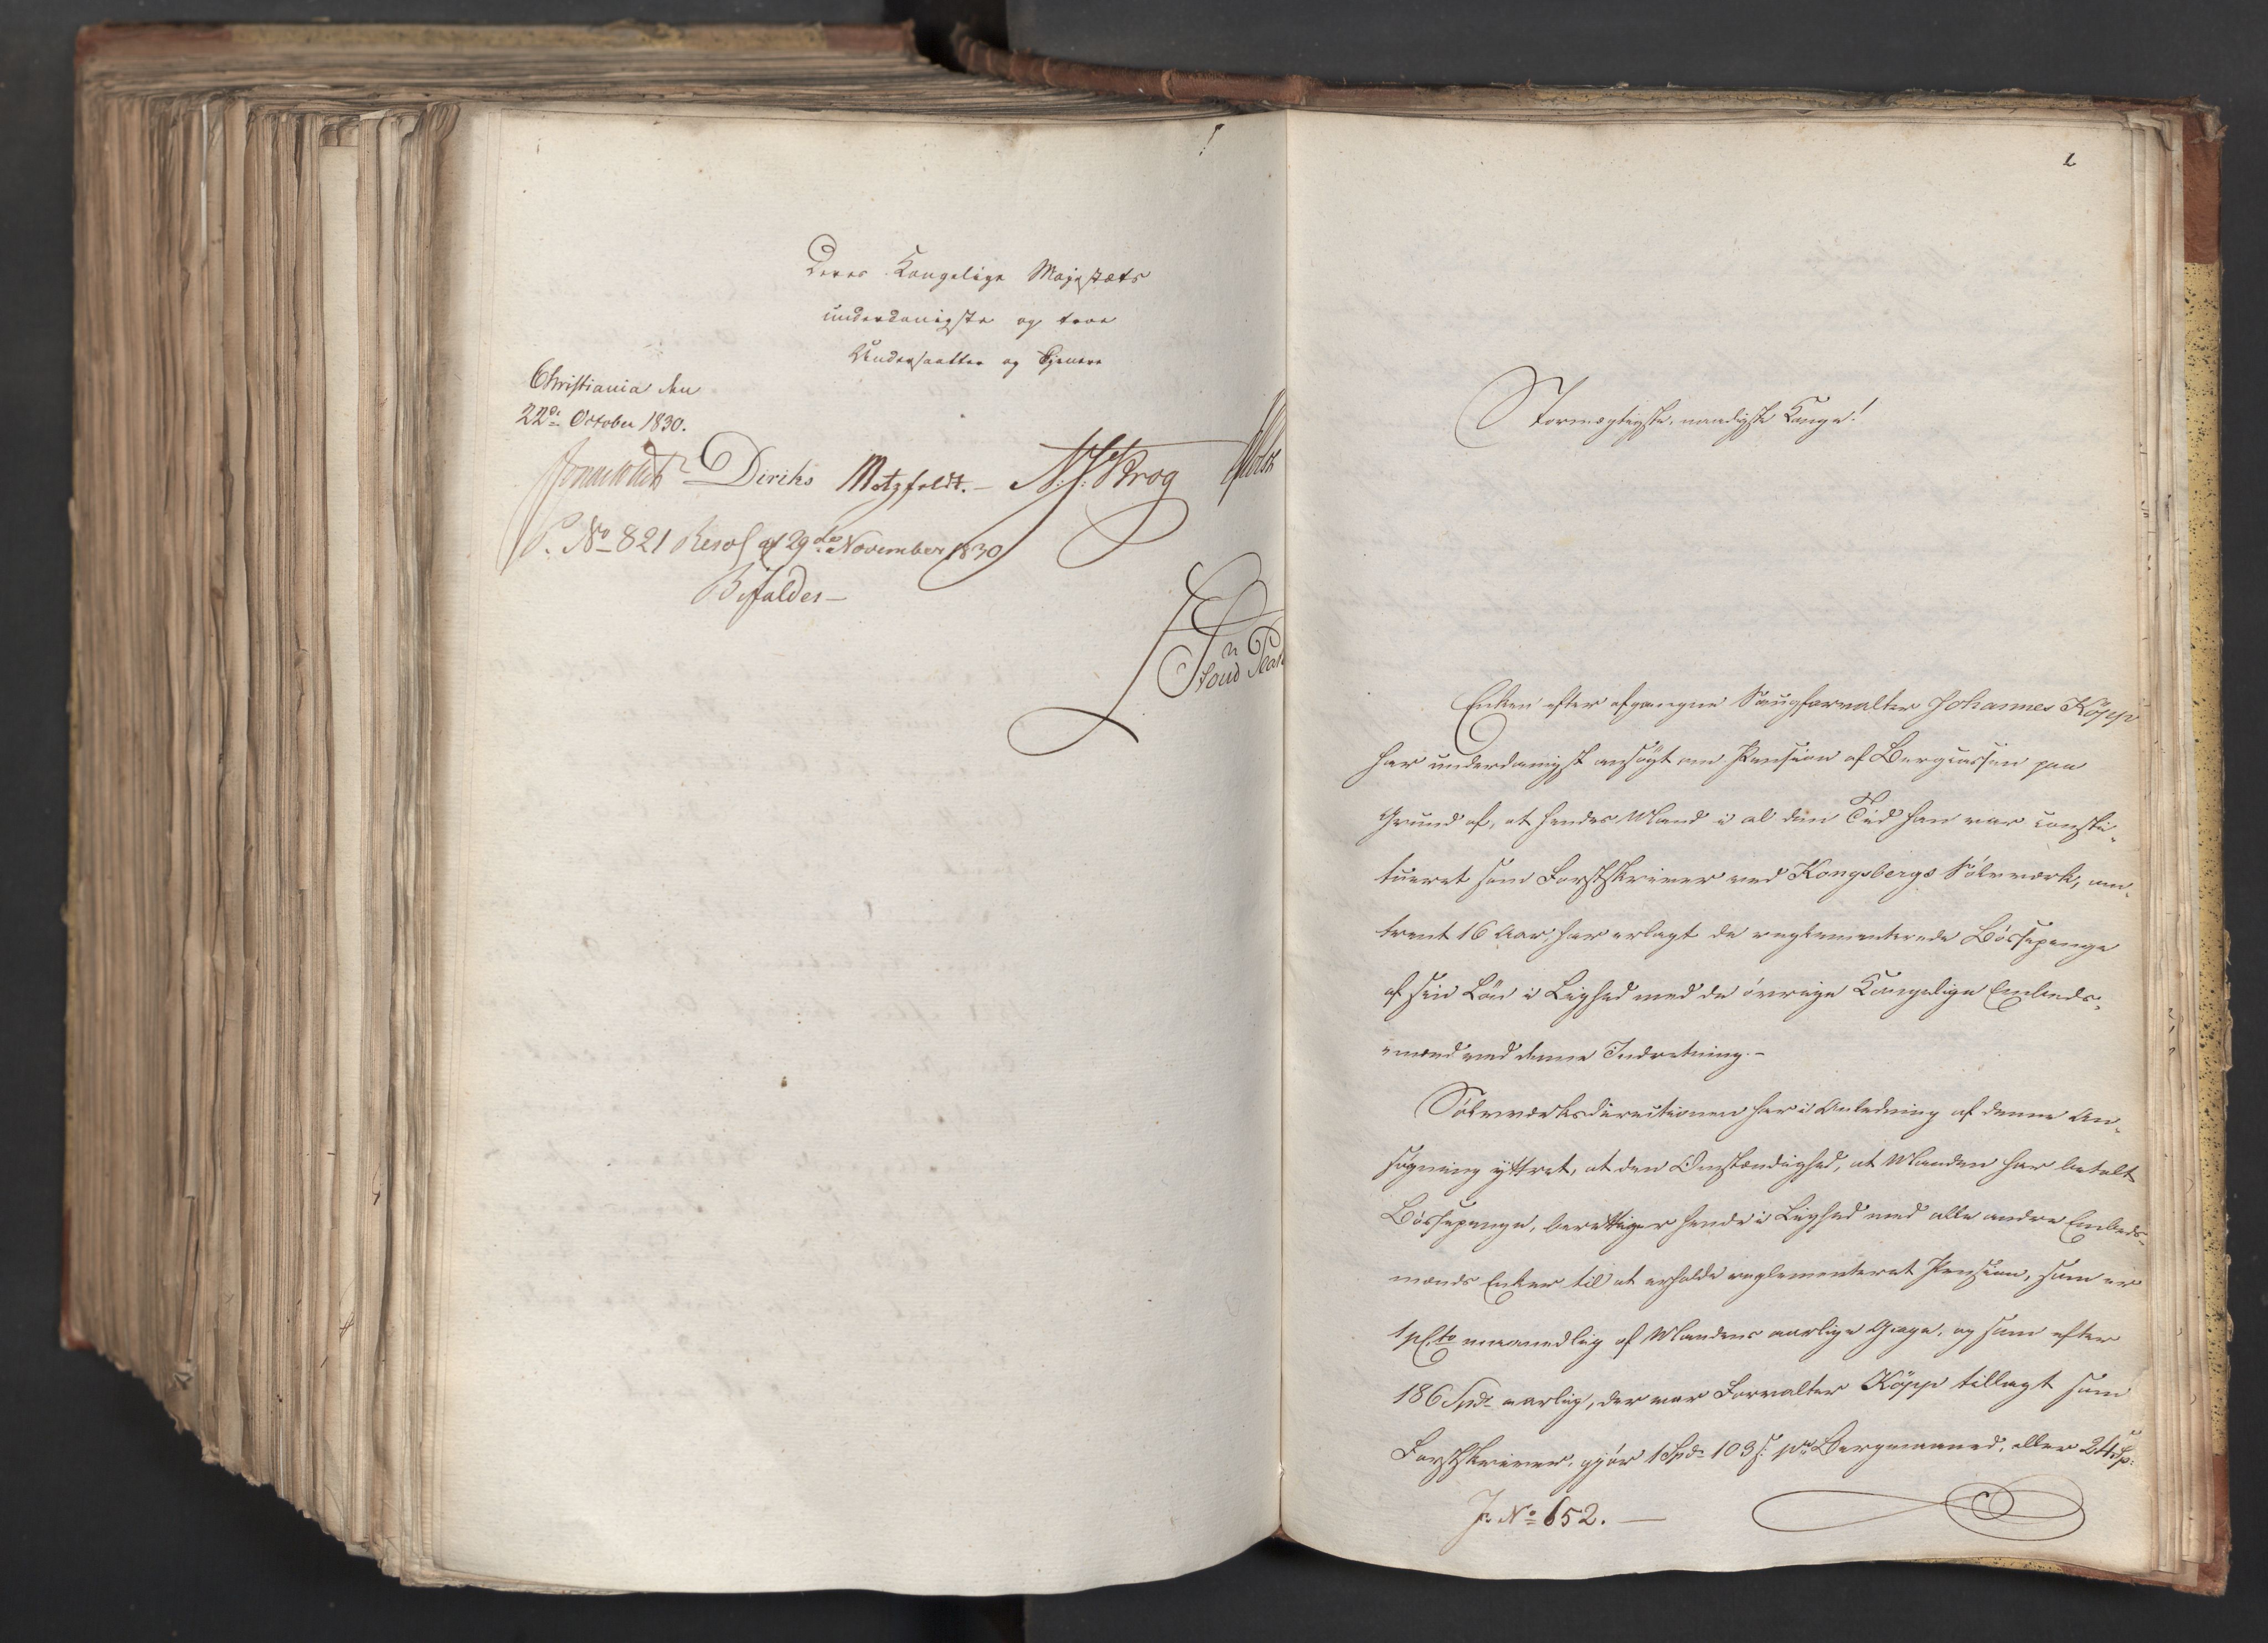 Deres Kongelige Majestæts
underdanigste og troe
Undersaatter og Tjenere
Christiania den
22de October 1830.
Diriks Motzfeldt. N. J. Krog Holst
P. No 821 Resol af 29de November 1830
Bifaldes
2
Stormægtigste, naadigste Konge!
Enken efter afgangne Saugforvalter Johannes Köpp
har underdanigst ansøgt om Pension af Bergcassen paa
Grund af, at hendes Mand i al den Tid han var consti-
tueret som Forstskriver ved Kongsbergs Sölvværk, om-
trent 16 Aar, har erlagt de reglementerede Bössepenge
af sin Lön i Lighed med de övrige Kongelige Embeds-
mænd ved denne Indretning.-
Sölvværksdirectionen har i Anledning af denne An-
søgning yttret, at den Omstændighed, at Manden har betalt
Bössepenge, berettiger hende i Lighed med alle andre Embeds-
mænds Enker til at erholde reglementeret Pension, som er
1 pCto maanedlig af Mandens aarlige Gage, og som efter
186 Spd aarlig, der var Forvalter Köpp tillagt som
Forstskriver, gjör 1 Spd 103 s. pr Bergmaaned, eller 24 Sp:
J. No 652.